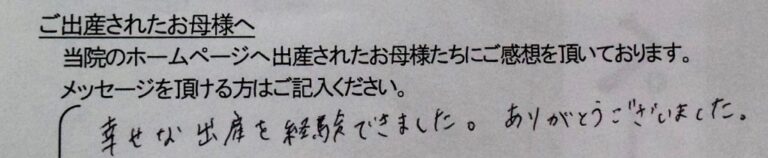 ご出産されたお母様へ
当院のホームページへ出産されたお母様たちにご感想を頂いております。
メッセージを頂ける方はご記入ください。
幸せな出産を経験できました。ありがとうございました。